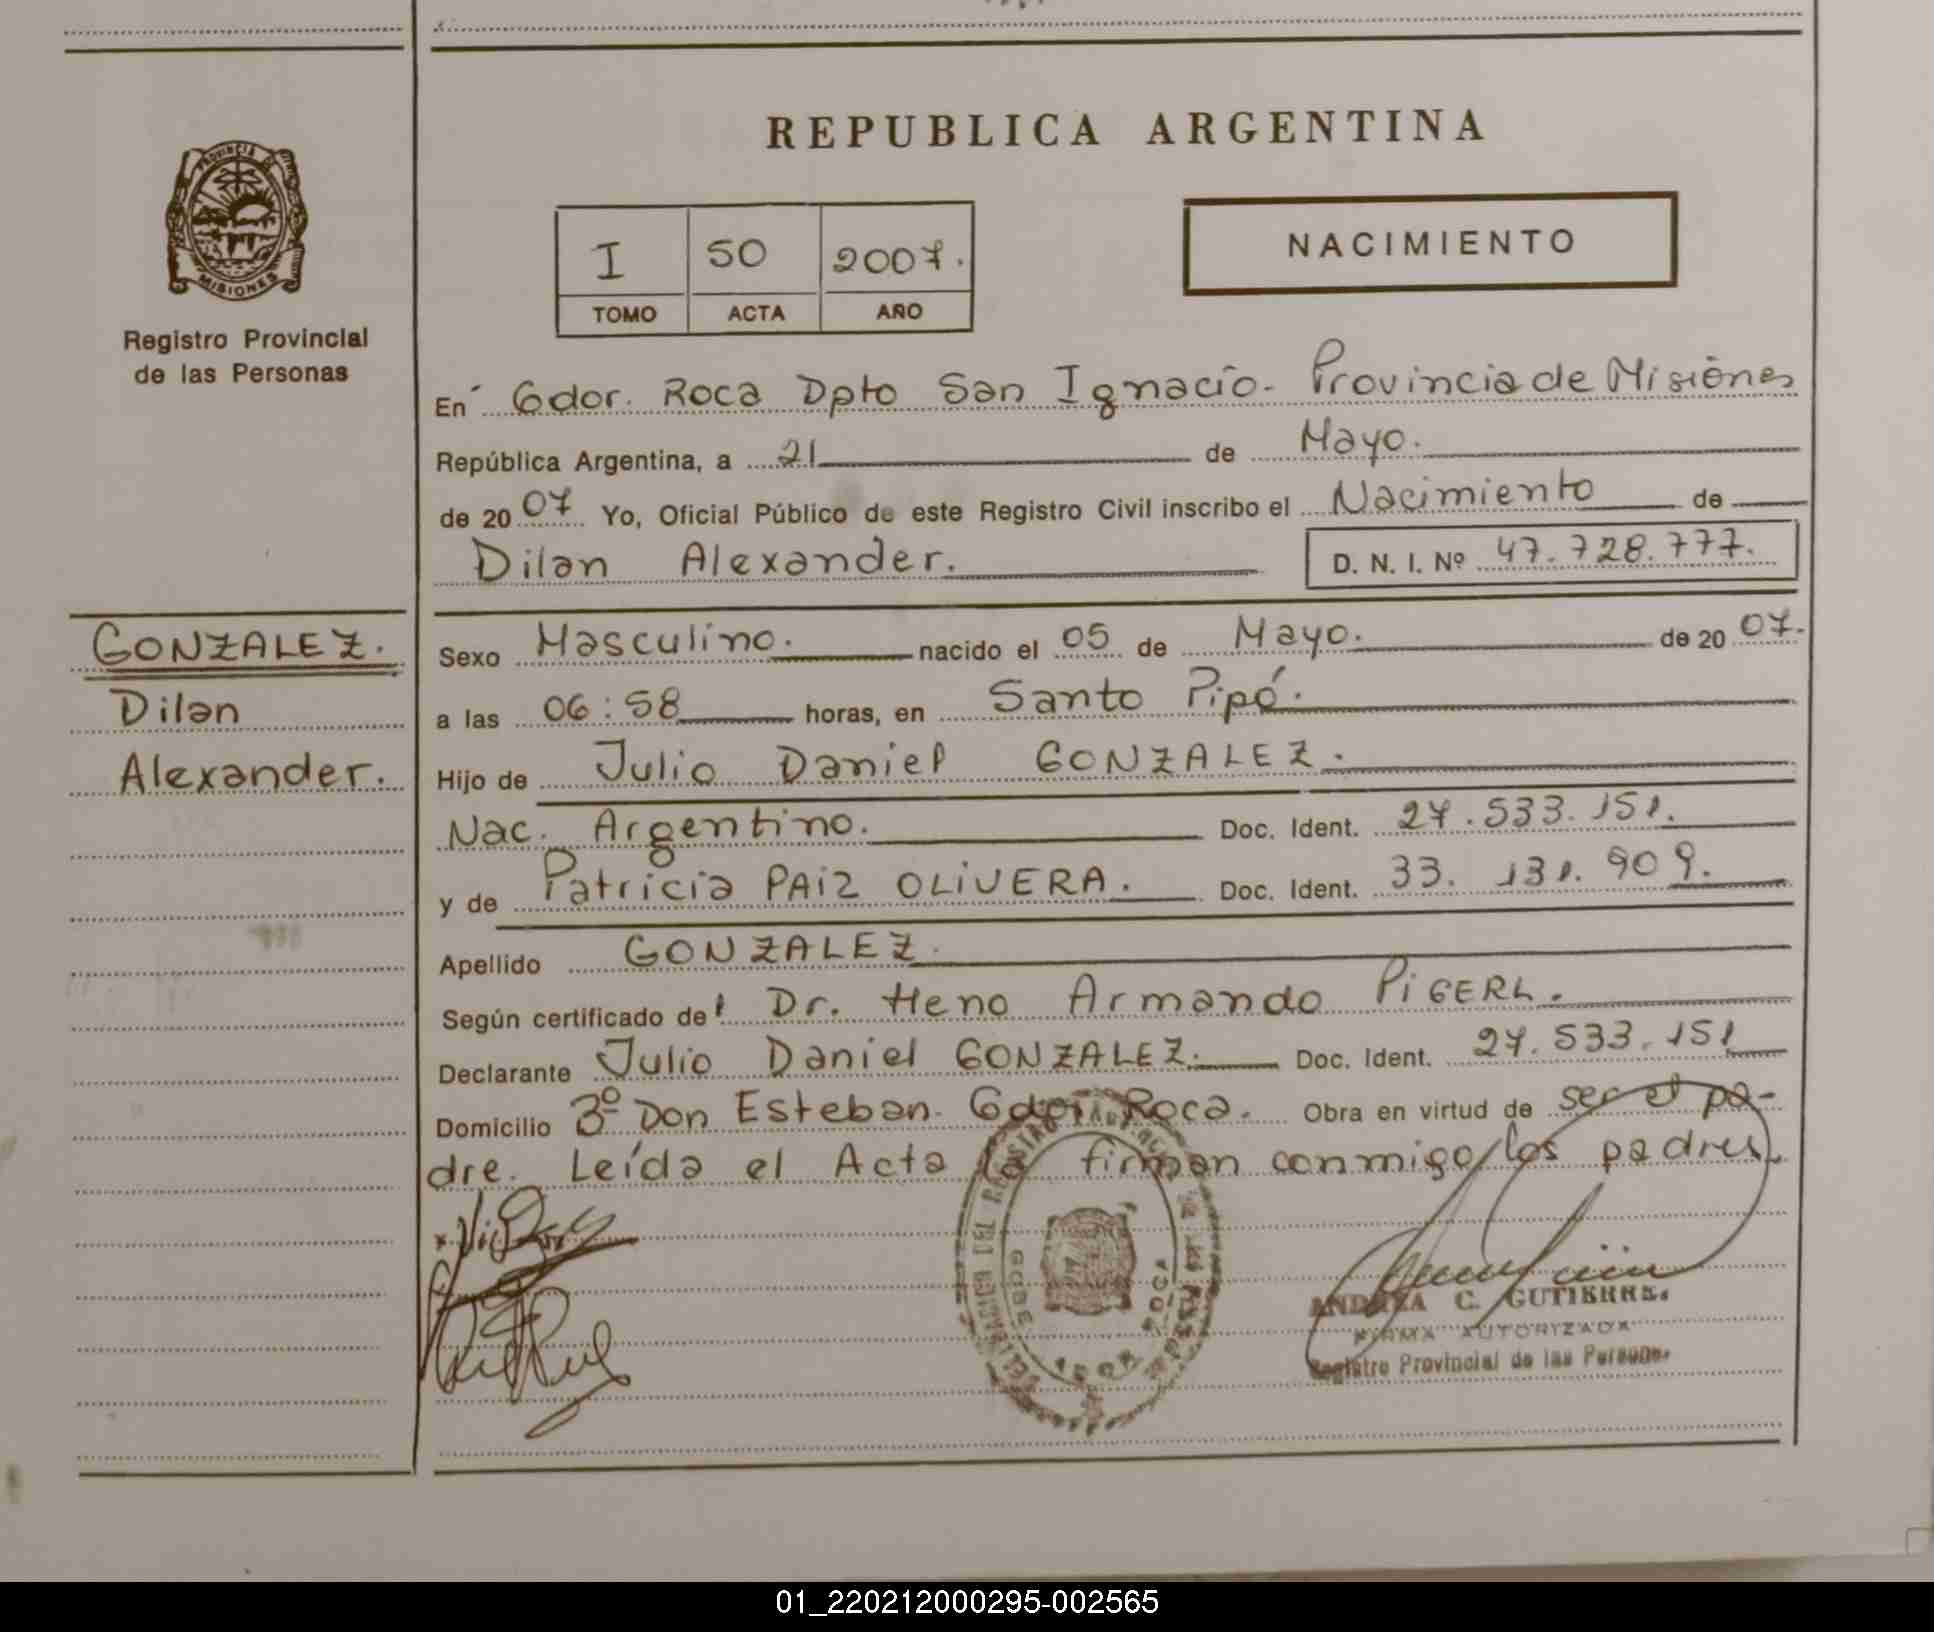 PROVINCIA DE
MISIONES
Registro Provincial
de las Personas
GONZALEZ.
Dilan
Alexander.
REPUBLICA ARGENTINA
I 50 2007.
TOMO ACTA AÑO
NACIMIENTO
En Gdor. Roca Dpto San Ignacio. Provincia de Misiones
República Argentina, a 21 de Mayo.
de 2007 Yo, Oficial Público de este Registro Civil inscribo el Nacimiento de
Dilan Alexander. D. N. I. Nº 47.728.777.
Sexo Masculino. nacido el 05 de Mayo. de 2007.
a las 06:58 horas, en Santo Pipó.
Hijo de Julio Daniel GONZALEZ.
Nac. Argentino. Doc. Ident. 27.533.151.
y de Patricia PAIZ OLIVERA. Doc. Ident. 33. 131. 909.
Apellido GONZALEZ.
Según certificado del Dr. Heno Armando PIGERL.
Declarante Julio Daniel GONZALEZ. Doc. Ident. 27.533.151
Domicilio 3º Don Esteban. Gdor. Roca. Obra en virtud de ser el pa-
dre. Leída el Acta la firman conmigo los padres.
DELEGACION DEL REGISTRO
ROCA
ANDREA C. GUTIERREZ
FIRMA AUTORIZADA
Registro Provincial de las Personas
01_220212000295-002565